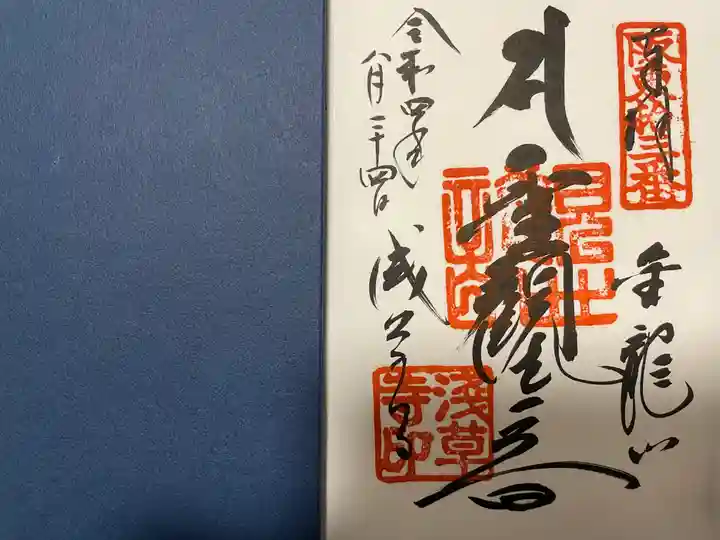 奉拝
坂東拾三番
金龍山
聖観世音
令和四年
八月二十四日
浅草寺
淺草
寺印